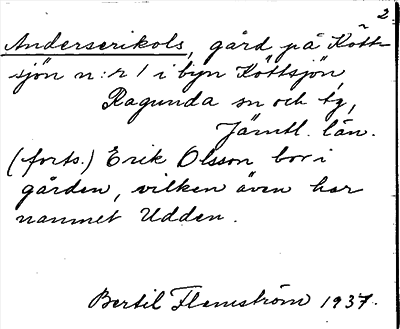 2.
Anderserikols, gård på Kött-
sjön n:r 1 i byn Köttsjön,
Ragunda sn och tg,
Jämtl. län.
(forts.) Erik Olsson bor i
gården, vilken även har
namnet Udden.
Bertil Flemström 1937.